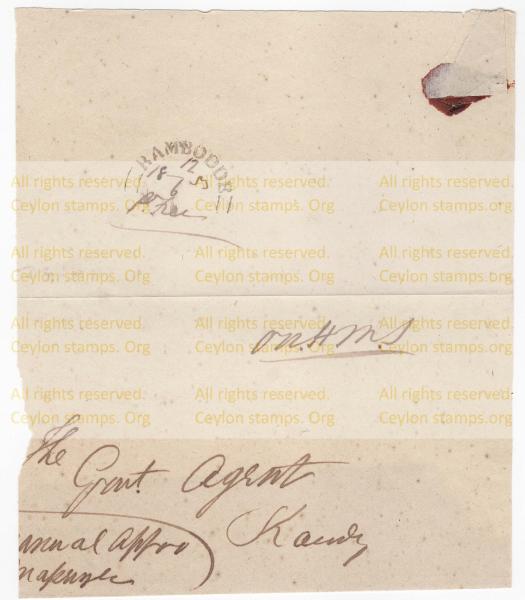 RAMBODDE
12
18 57
6
All rights reserved. All rights reserved. All rights reserved.
Ceylon stamps. Org Ceylon stamps. Org Ceylon stamps. Org
All rights reserved. All rights reserved. All rights reserved.
Ceylon stamps. Org Ceylon stamps. Org Ceylon stamps. Org
All rights reserved. All rights reserved. All rights reserved.
Ceylon stamps. Org Ceylon stamps. Org Ceylon stamps. Org
On. H M. S
All rights reserved. All rights reserved. All rights reserved.
Ceylon stamps. Org Ceylon stamps. Org Ceylon stamps. Org
The
Govt. Agent
Kandy